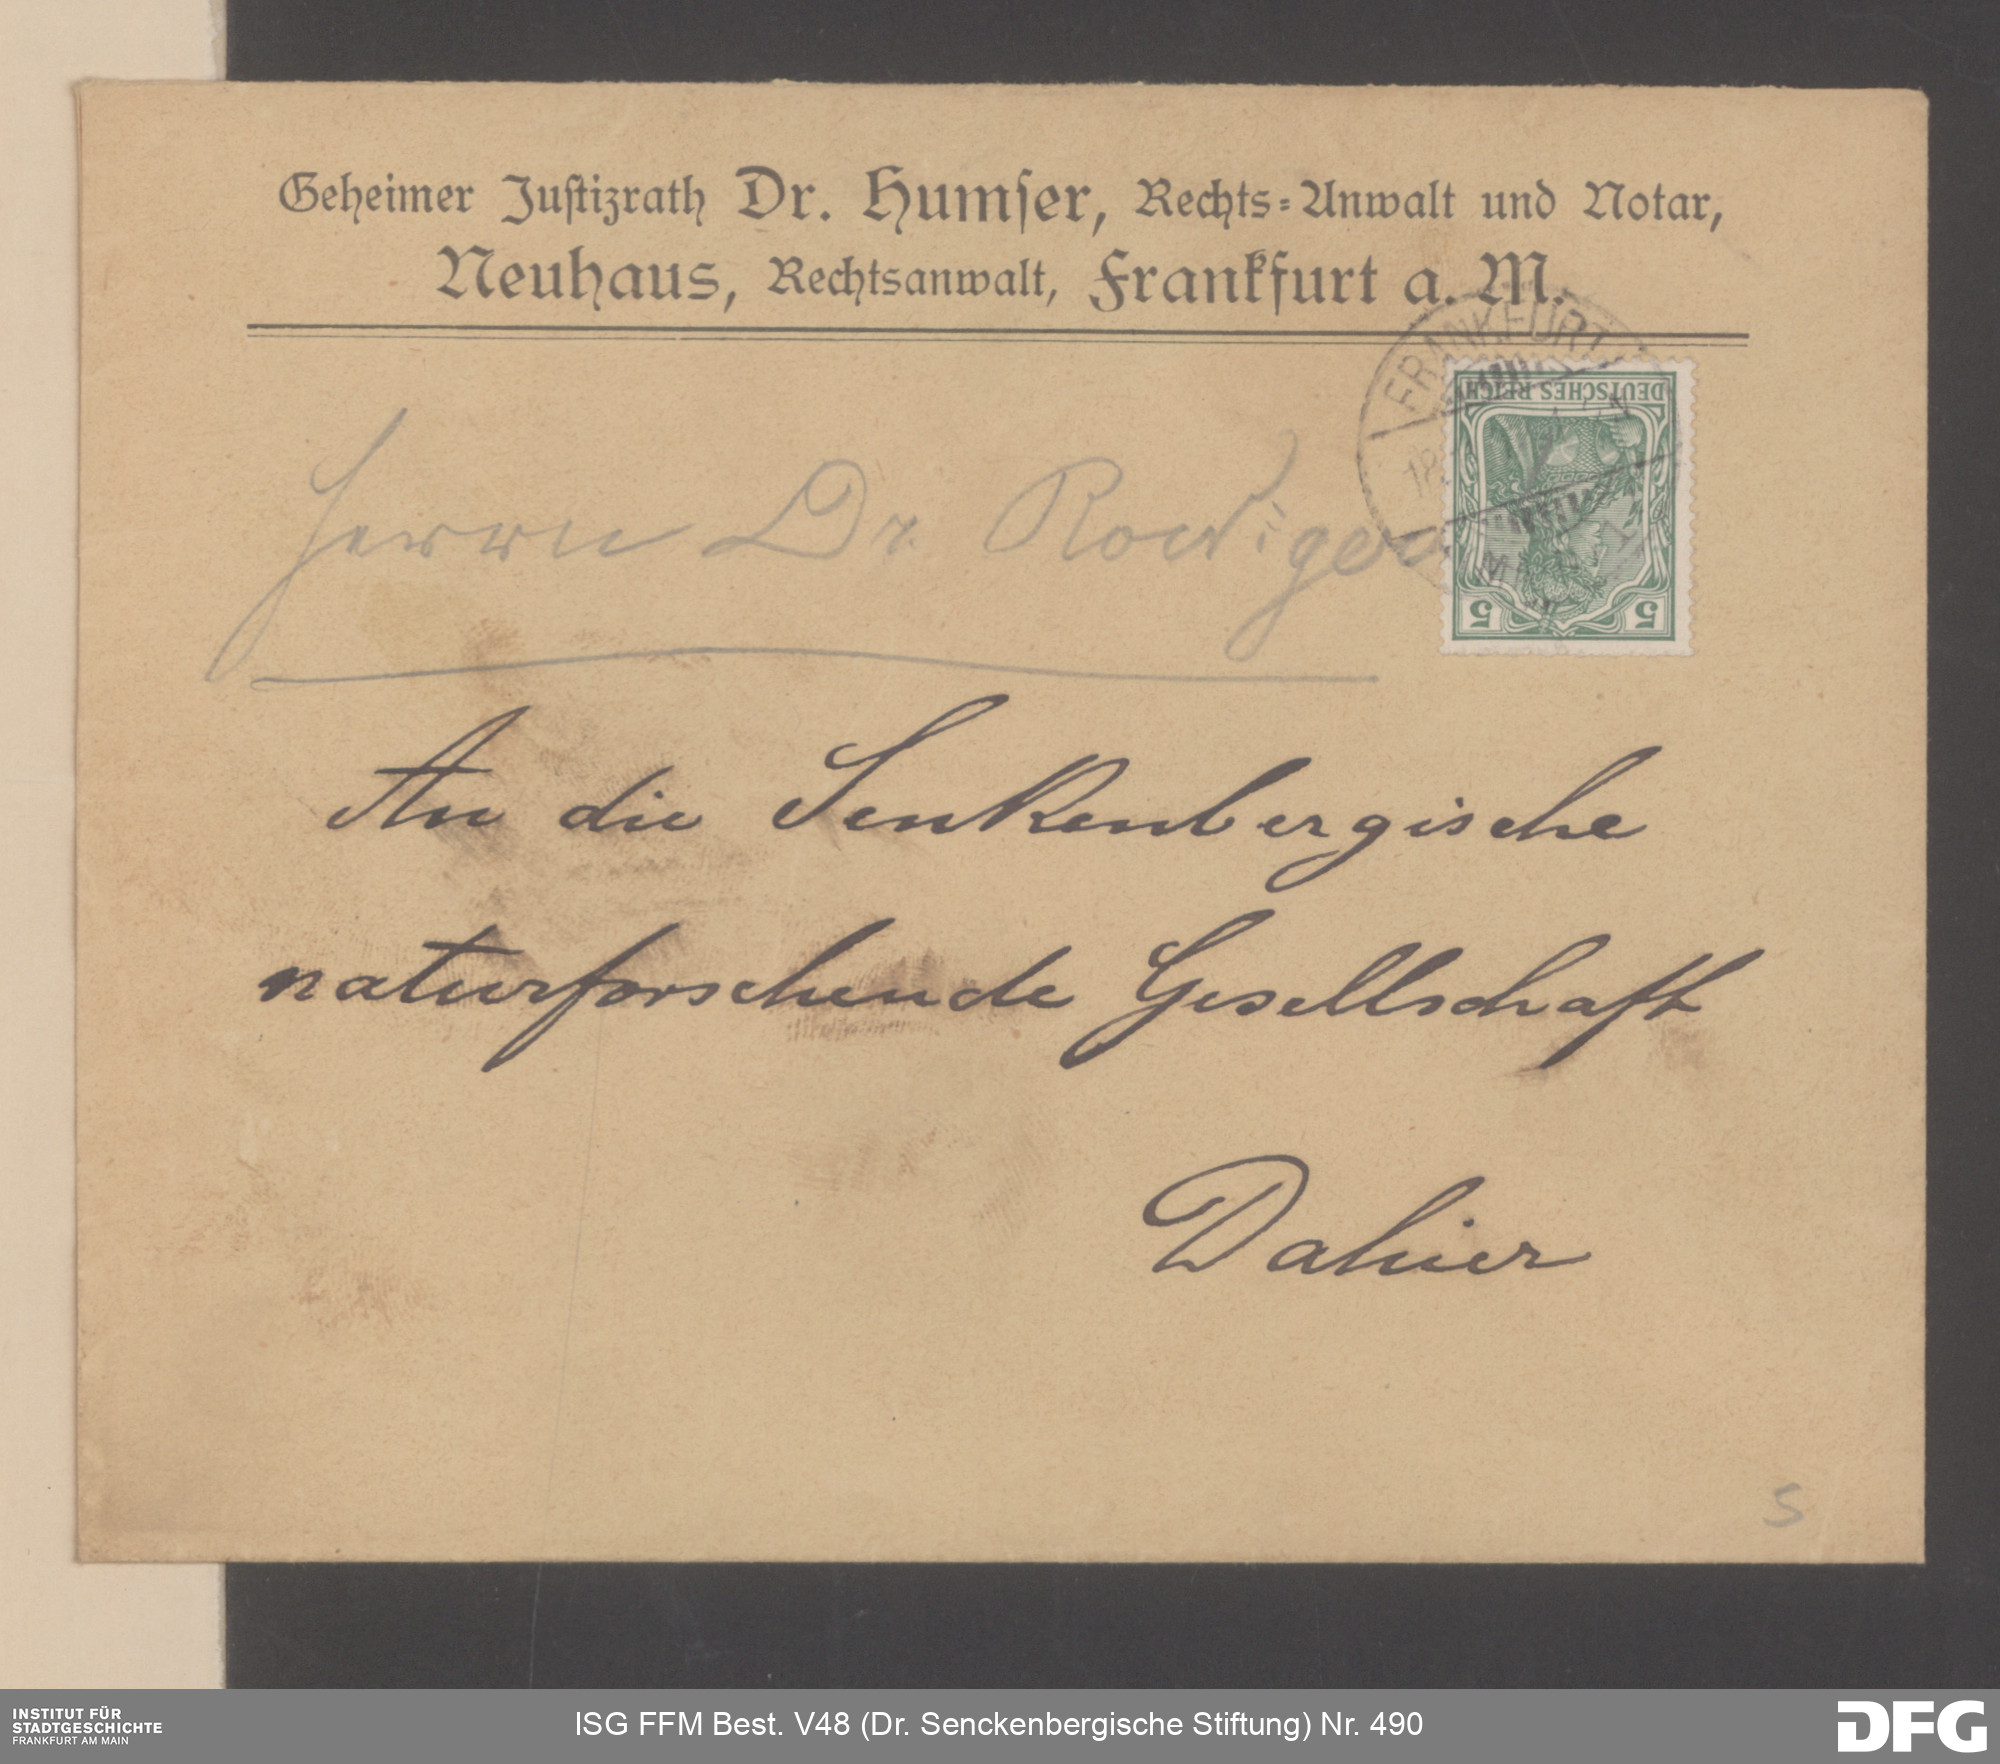 Geheimer Justizrath Dr. Humser, Rechts=Anwalt und Notar,
Neuhaus, Rechtsanwalt, Frankfurt a. M.
FRANKFURT
DEUTSCHES REICH
5 5
Herrn Dr Roediger
An die Senkenbergische
naturforschende Gesellschaft
Dahier
5
INSTITUT FÜR
STADTGESCHICHTE
FRANKFURT AM MAIN
ISG FFM Best. V48 (Dr. Senckenbergische Stiftung) Nr. 490
DFG